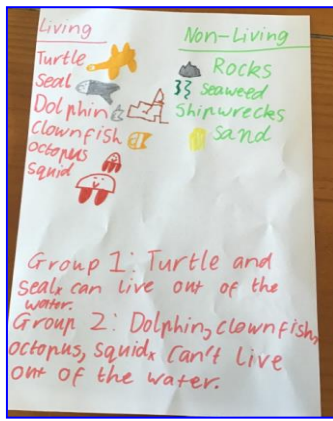 Living
Turtle
Seal
Dolphin
clownfish
octopus
squid
Non-Living
Rocks
seaweed
Shipwrecks
Sand
Group 1: Turtle and
seal, can live out of the
water.
Group 2: Dolphin, clownfish,
octopus, squid, can't live
out of the water.